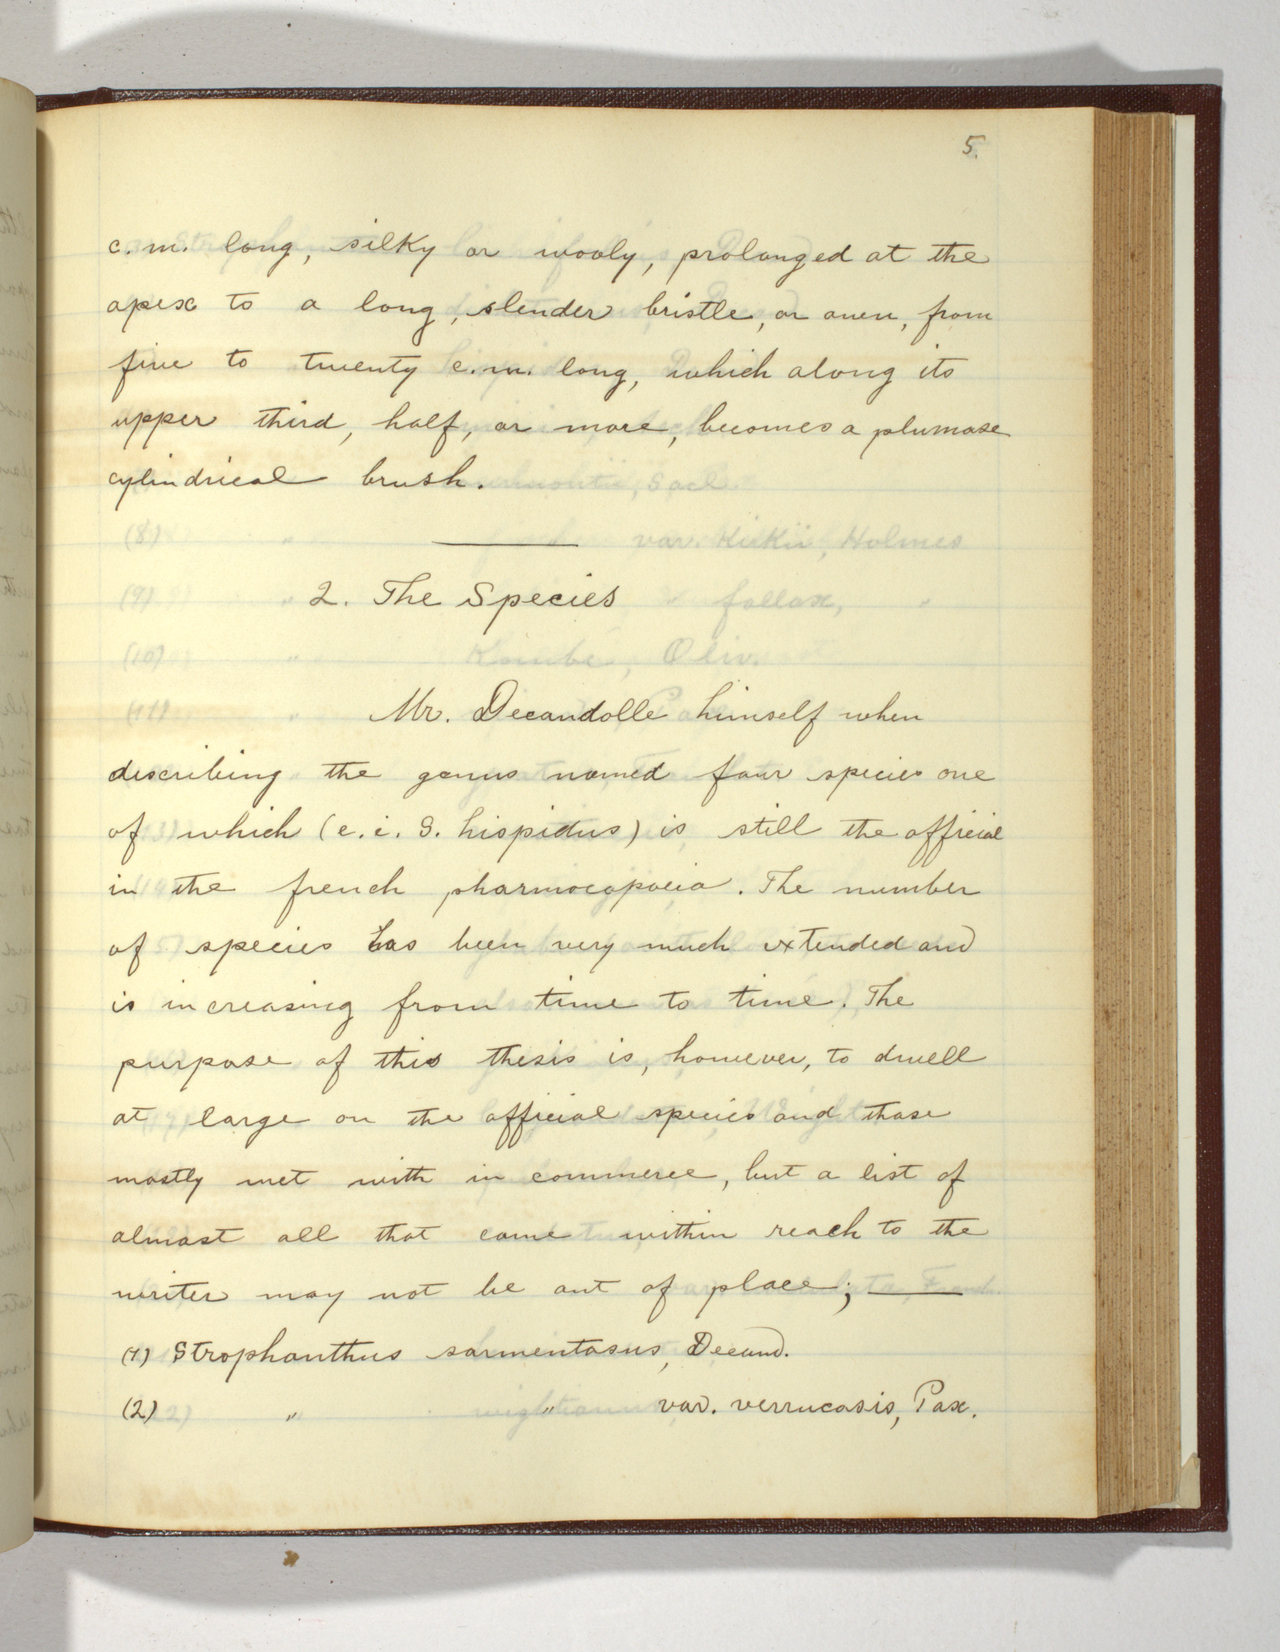 5.
c.m. long, silky or wooly, prolonged at the
apex to a long, slender bristle, or awn, from
five to twenty c.m. long, which along its
upper third, half, or more, becomes a plumose
cylindrical brush.
2. The Species
Mr. Decandolle himself when
describing the genus named four species one
of which (e.i. S. hispidus) is still the official
in the french pharmocopoeia. The number
of species has been very much extended and
is increasing from time to time. The
purpose of this thesis is, however, to dwell
at large on the official species and those
mostly met with in commerce, but a list of
almost all that come within reach to the
writer may not be out of place; —
(1) Strophanthus sarmentosus, Decand.
(2) " " var. verrucosis, Pax.